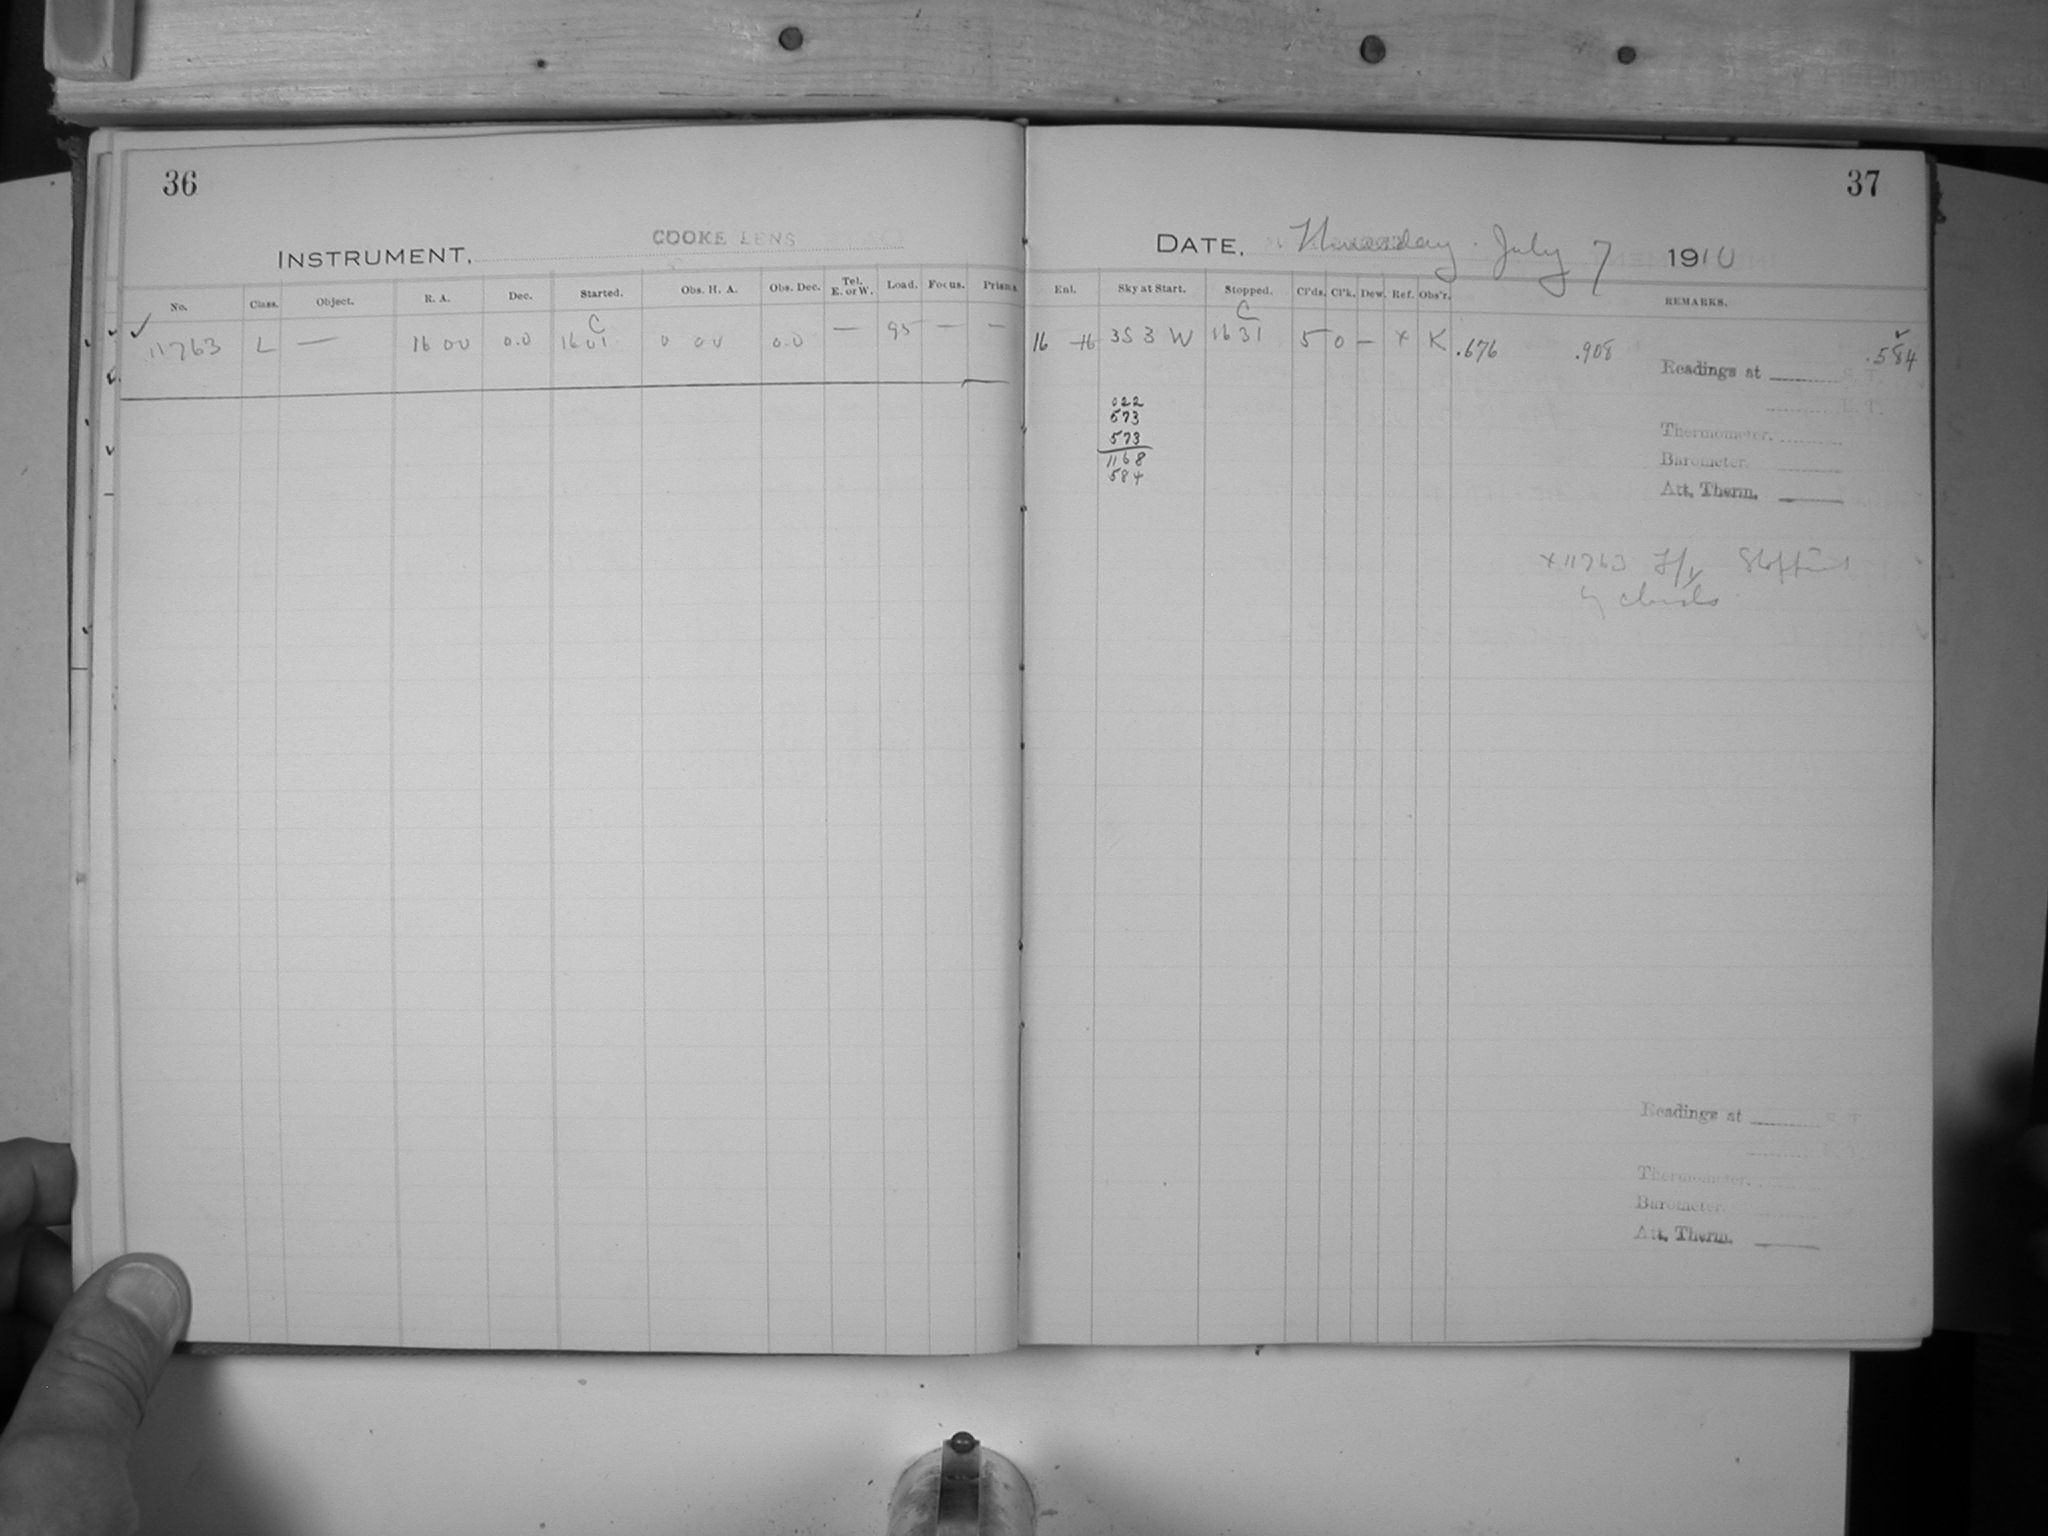 36
INSTRUMENT, COOKE LENS
No. Class. Object. R. A. Dec. Started. Obs. H. A. Obs. Dec. Tel. E. or W. Load. Focus. Prisms
✓ 11763 L — 16 00 0.0 C 16 01 0 00 0.0 — 95 — —
37
DATE, Thursday. July 7 1910
Enl. Sky at Start. Stopped. Cl'ds. Cl'k. Dew. Ref. Obs'r. REMARKS.
16 16 3S 3 W C 16 31 5 0 — x K .676 .908 .584 ✓
Readings at S. T.
E. T.
Thermometer.
Barometer.
Att. Therm.
022
573
573
1168
584
x 11763 Stopped
by clouds
Readings at S. T.
Thermometer.
Barometer.
Att. Therm.